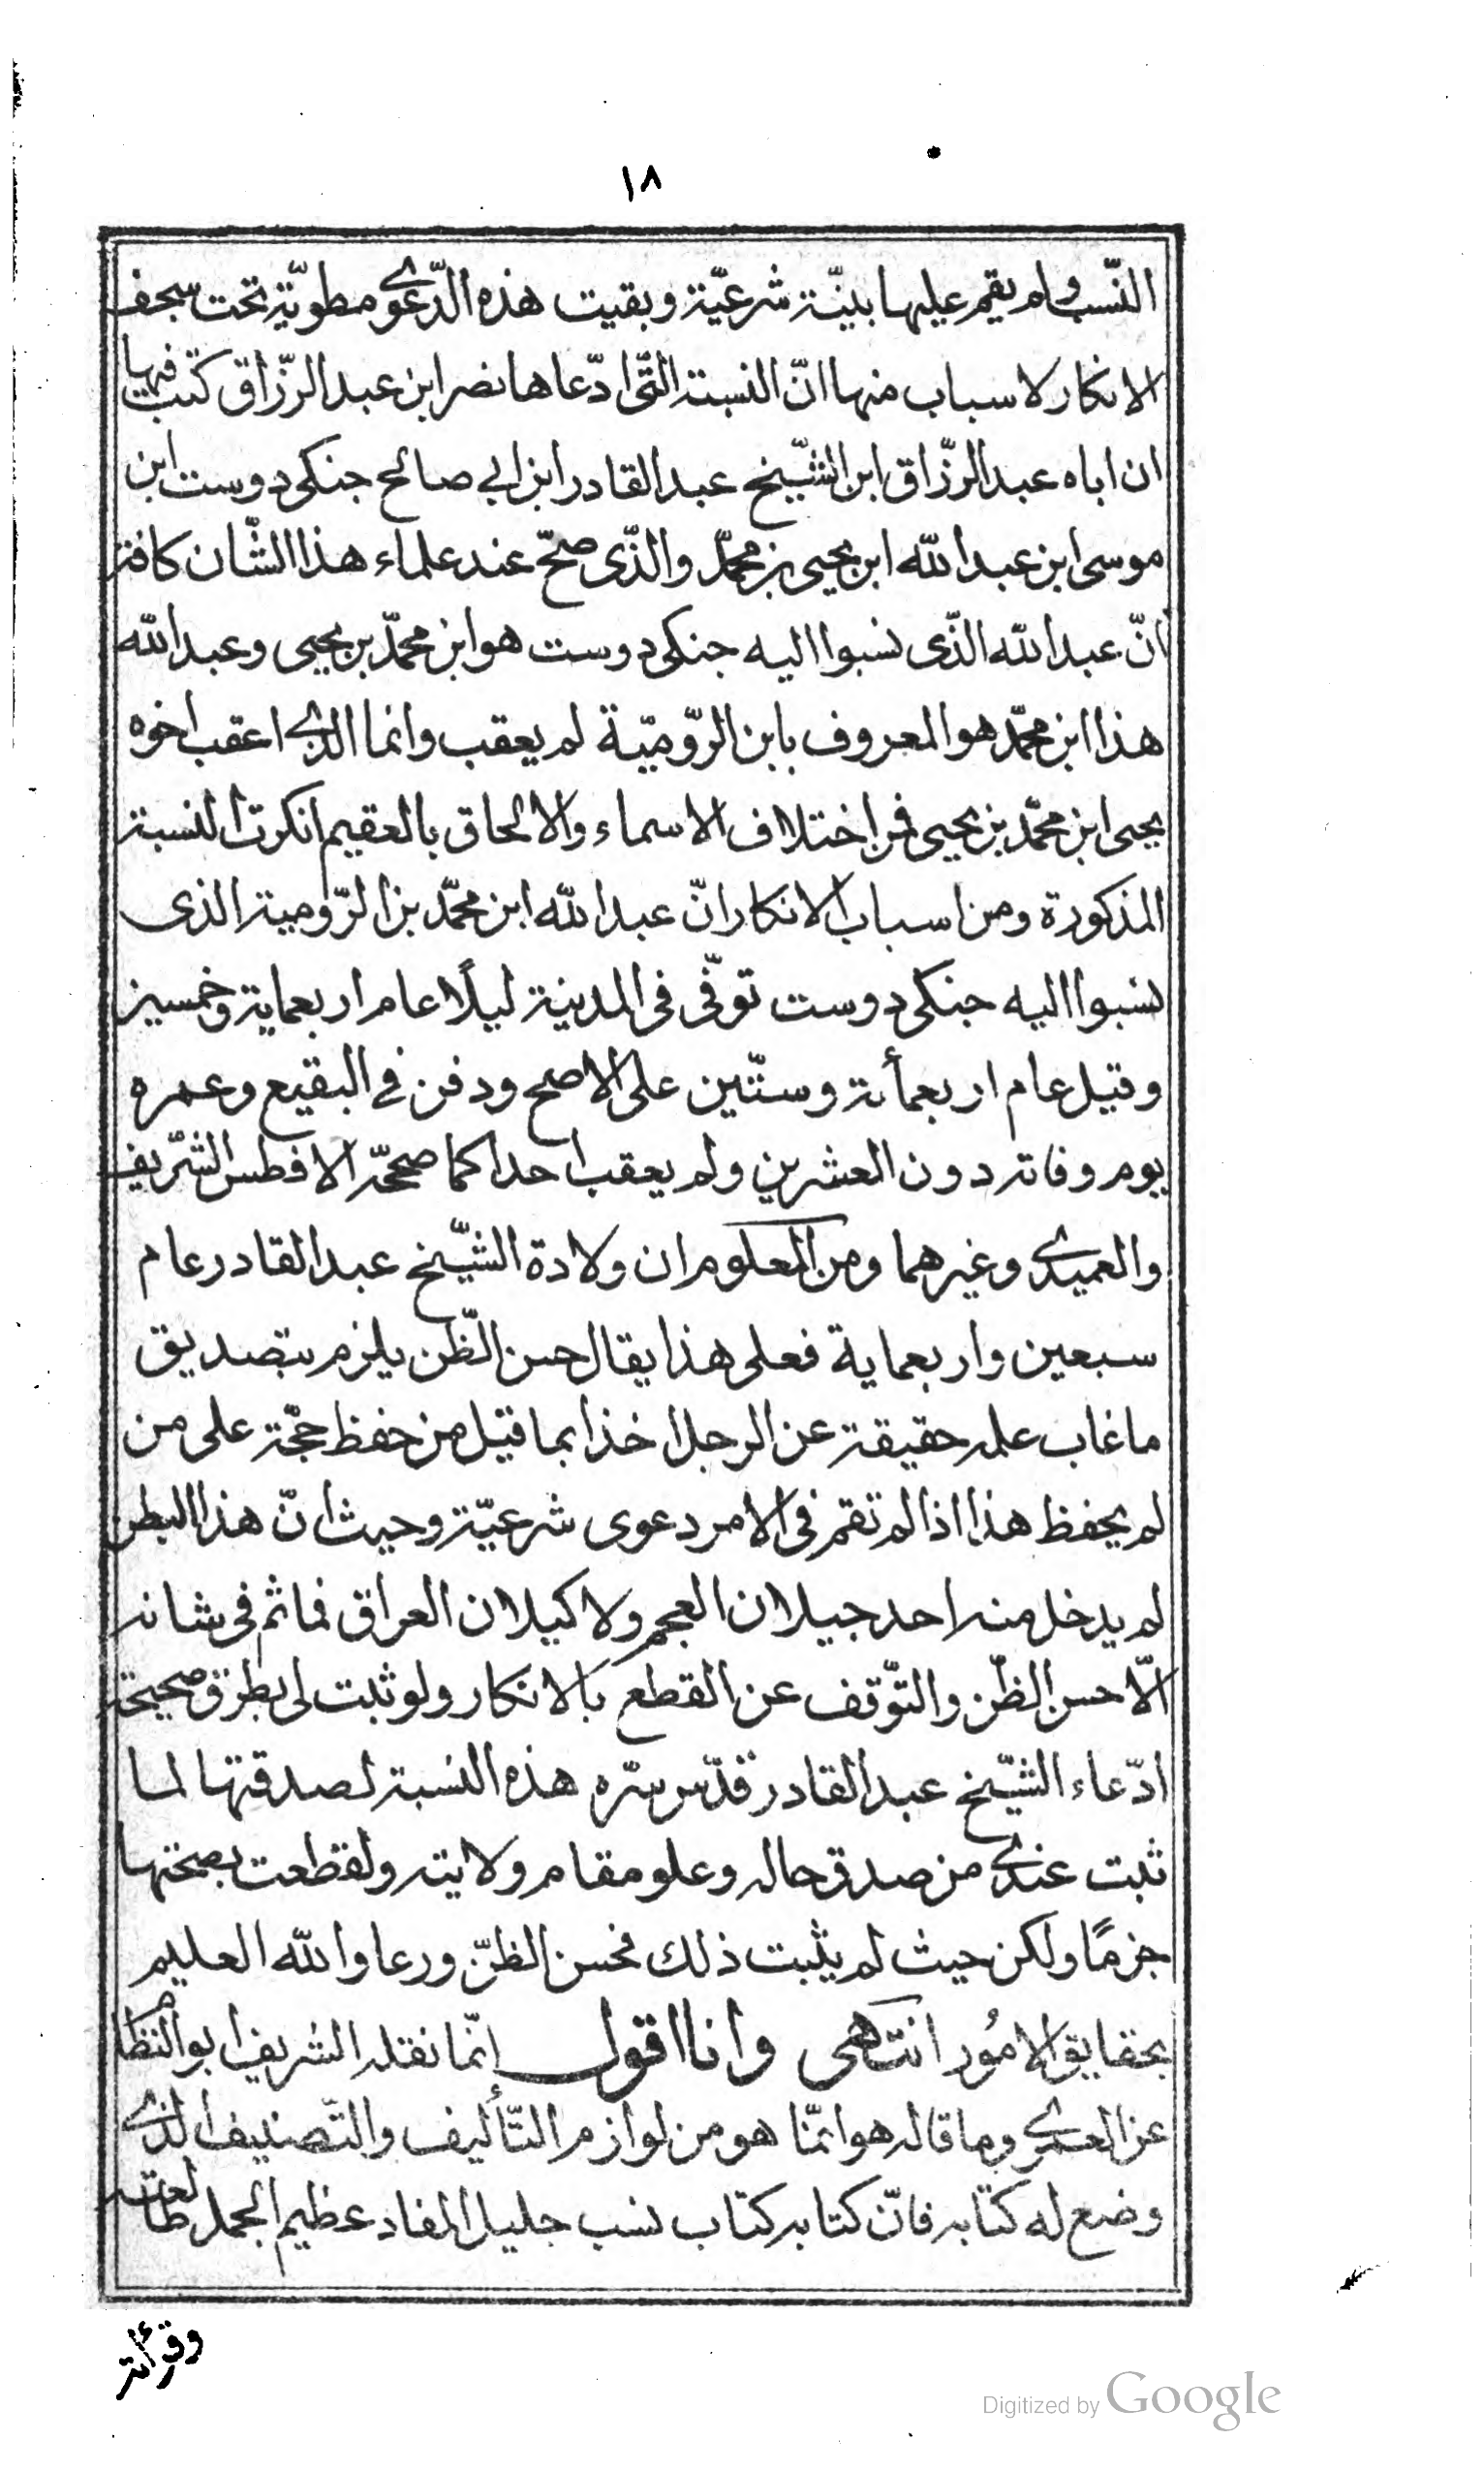 ١٨
النّسب ولم يقم عليها بينّة شرعيّة وبقيت هذه الدّعوى مطويّة تحت سجف
الانكار لاسباب منها انّ النسبة التّى ادّعاها نصر ابن عبد الرّزاق كتب فيها
ان اباه عبد الرزّاق ابن الشّيخ عبد القادر ابن ابى صالح جنكى دوست ابن
موسى ابن عبد الله ابن يحيى بن محمّد والذّى صحّ عند علماء هذا الشّان كافة
انّ عبد الله الذّى نسبوا اليه جنكى دوست هو ابن محمّد بن يحيى وعبد الله
هذا ابن محمّد هو المعروف بابن الرّوميّة لم يعقب وانما الذى اعقب اخوه
يحيى ابن محمّد بن يحيى فمن اختلاف الاسماء والالحاق بالعقيم انكرت النسبة
المذكورة ومن اسباب الانكار انّ عبد الله ابن محمّد بن الرّومية الذى
نسبوا اليه جنكى دوست توفّى فى المدينة ليلًا عام اربعماية وخمسين
وقيل عام اربعمأة وستّين على الاصح ودفن فى البقيع وعمره
يوم وفاته دون العشرين ولم يعقب احدا كما صححّه الافطس الشّريف
والعميدى وغيرهما ومن المعلوم ان ولادة الشّيخ عبد القادر عام
سبعين واربعماية فعلى هذا يقال حسن الظّن يلزم بتصديق
ما غاب علم حقيقة عن الرجل اخذا بما قيل من حفظ حجّة على من
لم يحفظ هذا اذا لم تقم فى الامر دعوى شرعيّة وحيث انّ هذا البطن
لم يدخل منه احد جيلان العجم ولا كيلان العراق فما ثم فى شانه
الّا حسن الظّن والتّوقف عن القطع بالانكار ولو ثبت لى بطرق صحيحة
ادّعاء الشّيخ عبد القادر قدّس سّره هذه النسبة لصدقتها لما
ثبت عندى من صدق حاله وعلو مقام ولايته ولقطعت بصحتها
جزمًا ولكن حيث لم يثبت ذلك فحسن الظنّ ورعا والله العليم
بحقايق الامُور انتهى وانا اقول انّما نقله الشريف ابو النظام
عن العمرى وما قاله هو انمّا هو من لوازم التّأليف والتّصنيف الذى
وضع له كتابه فانّ كتابه كتاب نسب جليل المفاد عظيم الجمل طالعته
وقرأته
Digitized by Google